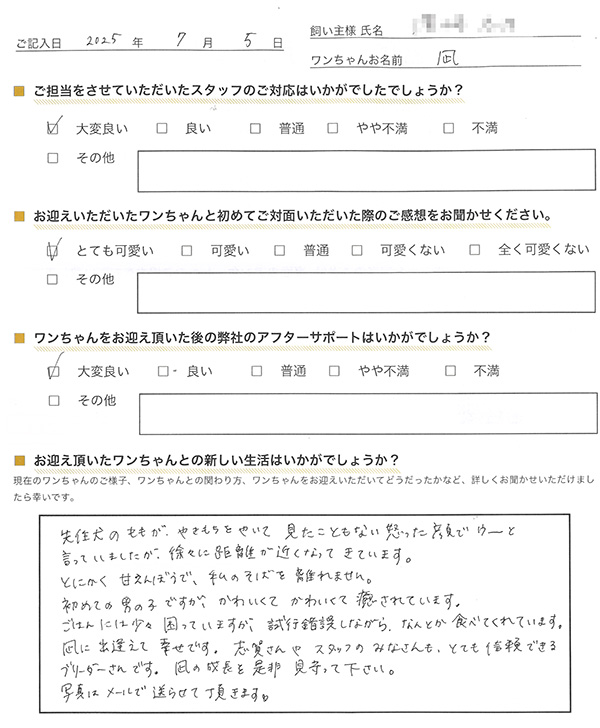 ご記入日 2025 年 7 月 5 日
飼い主様 氏名
ワンちゃんお名前 凪
■ ご担当をさせていただいたスタッフのご対応はいかがでしたでしょうか？
☑ 大変良い □ 良い □ 普通 □ やや不満 □ 不満
□ その他
■ お迎えいただいたワンちゃんと初めてご対面いただいた際のご感想をお聞かせください。
☑ とても可愛い □ 可愛い □ 普通 □ 可愛くない □ 全く可愛くない
□ その他
■ ワンちゃんをお迎え頂いた後の弊社のアフターサポートはいかがでしょうか？
☑ 大変良い □ 良い □ 普通 □ やや不満 □ 不満
□ その他
■ お迎え頂いたワンちゃんとの新しい生活はいかがでしょうか？
現在のワンちゃんのご様子、ワンちゃんとの関わり方、ワンちゃんをお迎えいただいてどうだったかなど、詳しくお聞かせいただけまし
たら幸いです。
先住犬のももが、やきもちをやいて 見たこともない 怒った顔で ゥーと
言っていましたが、徐々に距離が近くなって きています。
とにかく 甘えんぼうで、私のそばを 離れません。
初めての男の子ですが、かわいくて かわいくて 癒されています。
ごはんには少々 困っていますが、試行錯誤しながら、なんとか 食べてくれています。
凪に出逢えて 幸せです。 志賀さんや スタッフの みなさんも、とても 信頼できる
ブリーダーさんです。 凪の成長を 是非 見守って下さい。
写真は メールで 送らせて 頂きます。